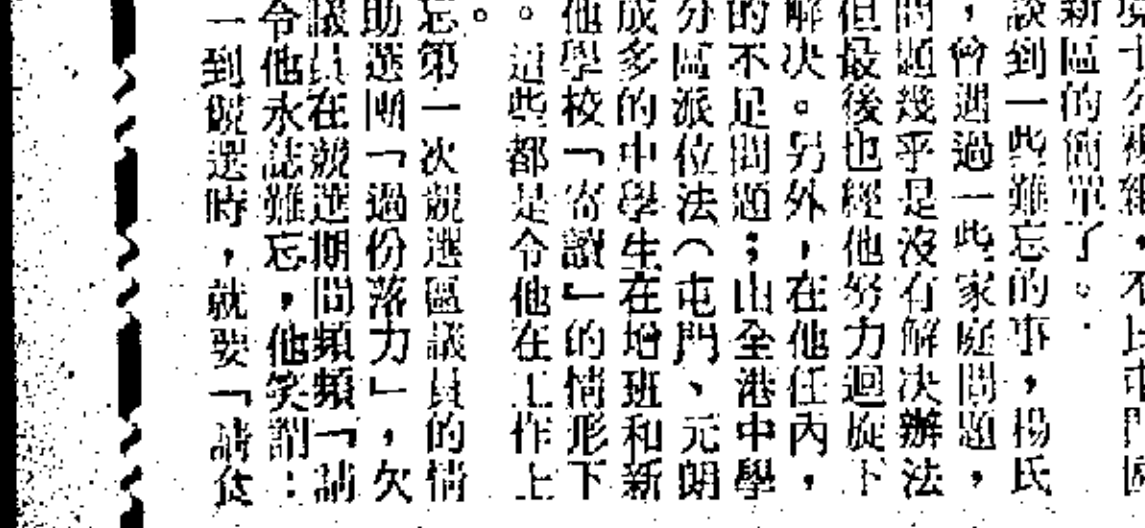 十分複雜,不比屯門區
新區的簡單了。
談到一些難忘的事,楊氏
,曾遇過一些家庭問題,
問題幾乎是沒有解決辦法
但最後也經他努力迴旋下
解決。另外,在他任內,
的不足問題;由全港中學
分區派位法(屯門、元朗
成多的中學生在增班和新
他學校「寄讀」的情形下
。這些都是令他在工作上
。
忘第一次競選區議員的情
助選團「過份落力」,欠
議員在競選期間頻頻「請
令他永誌難忘,他笑謂:
一到競選時,就要「請食